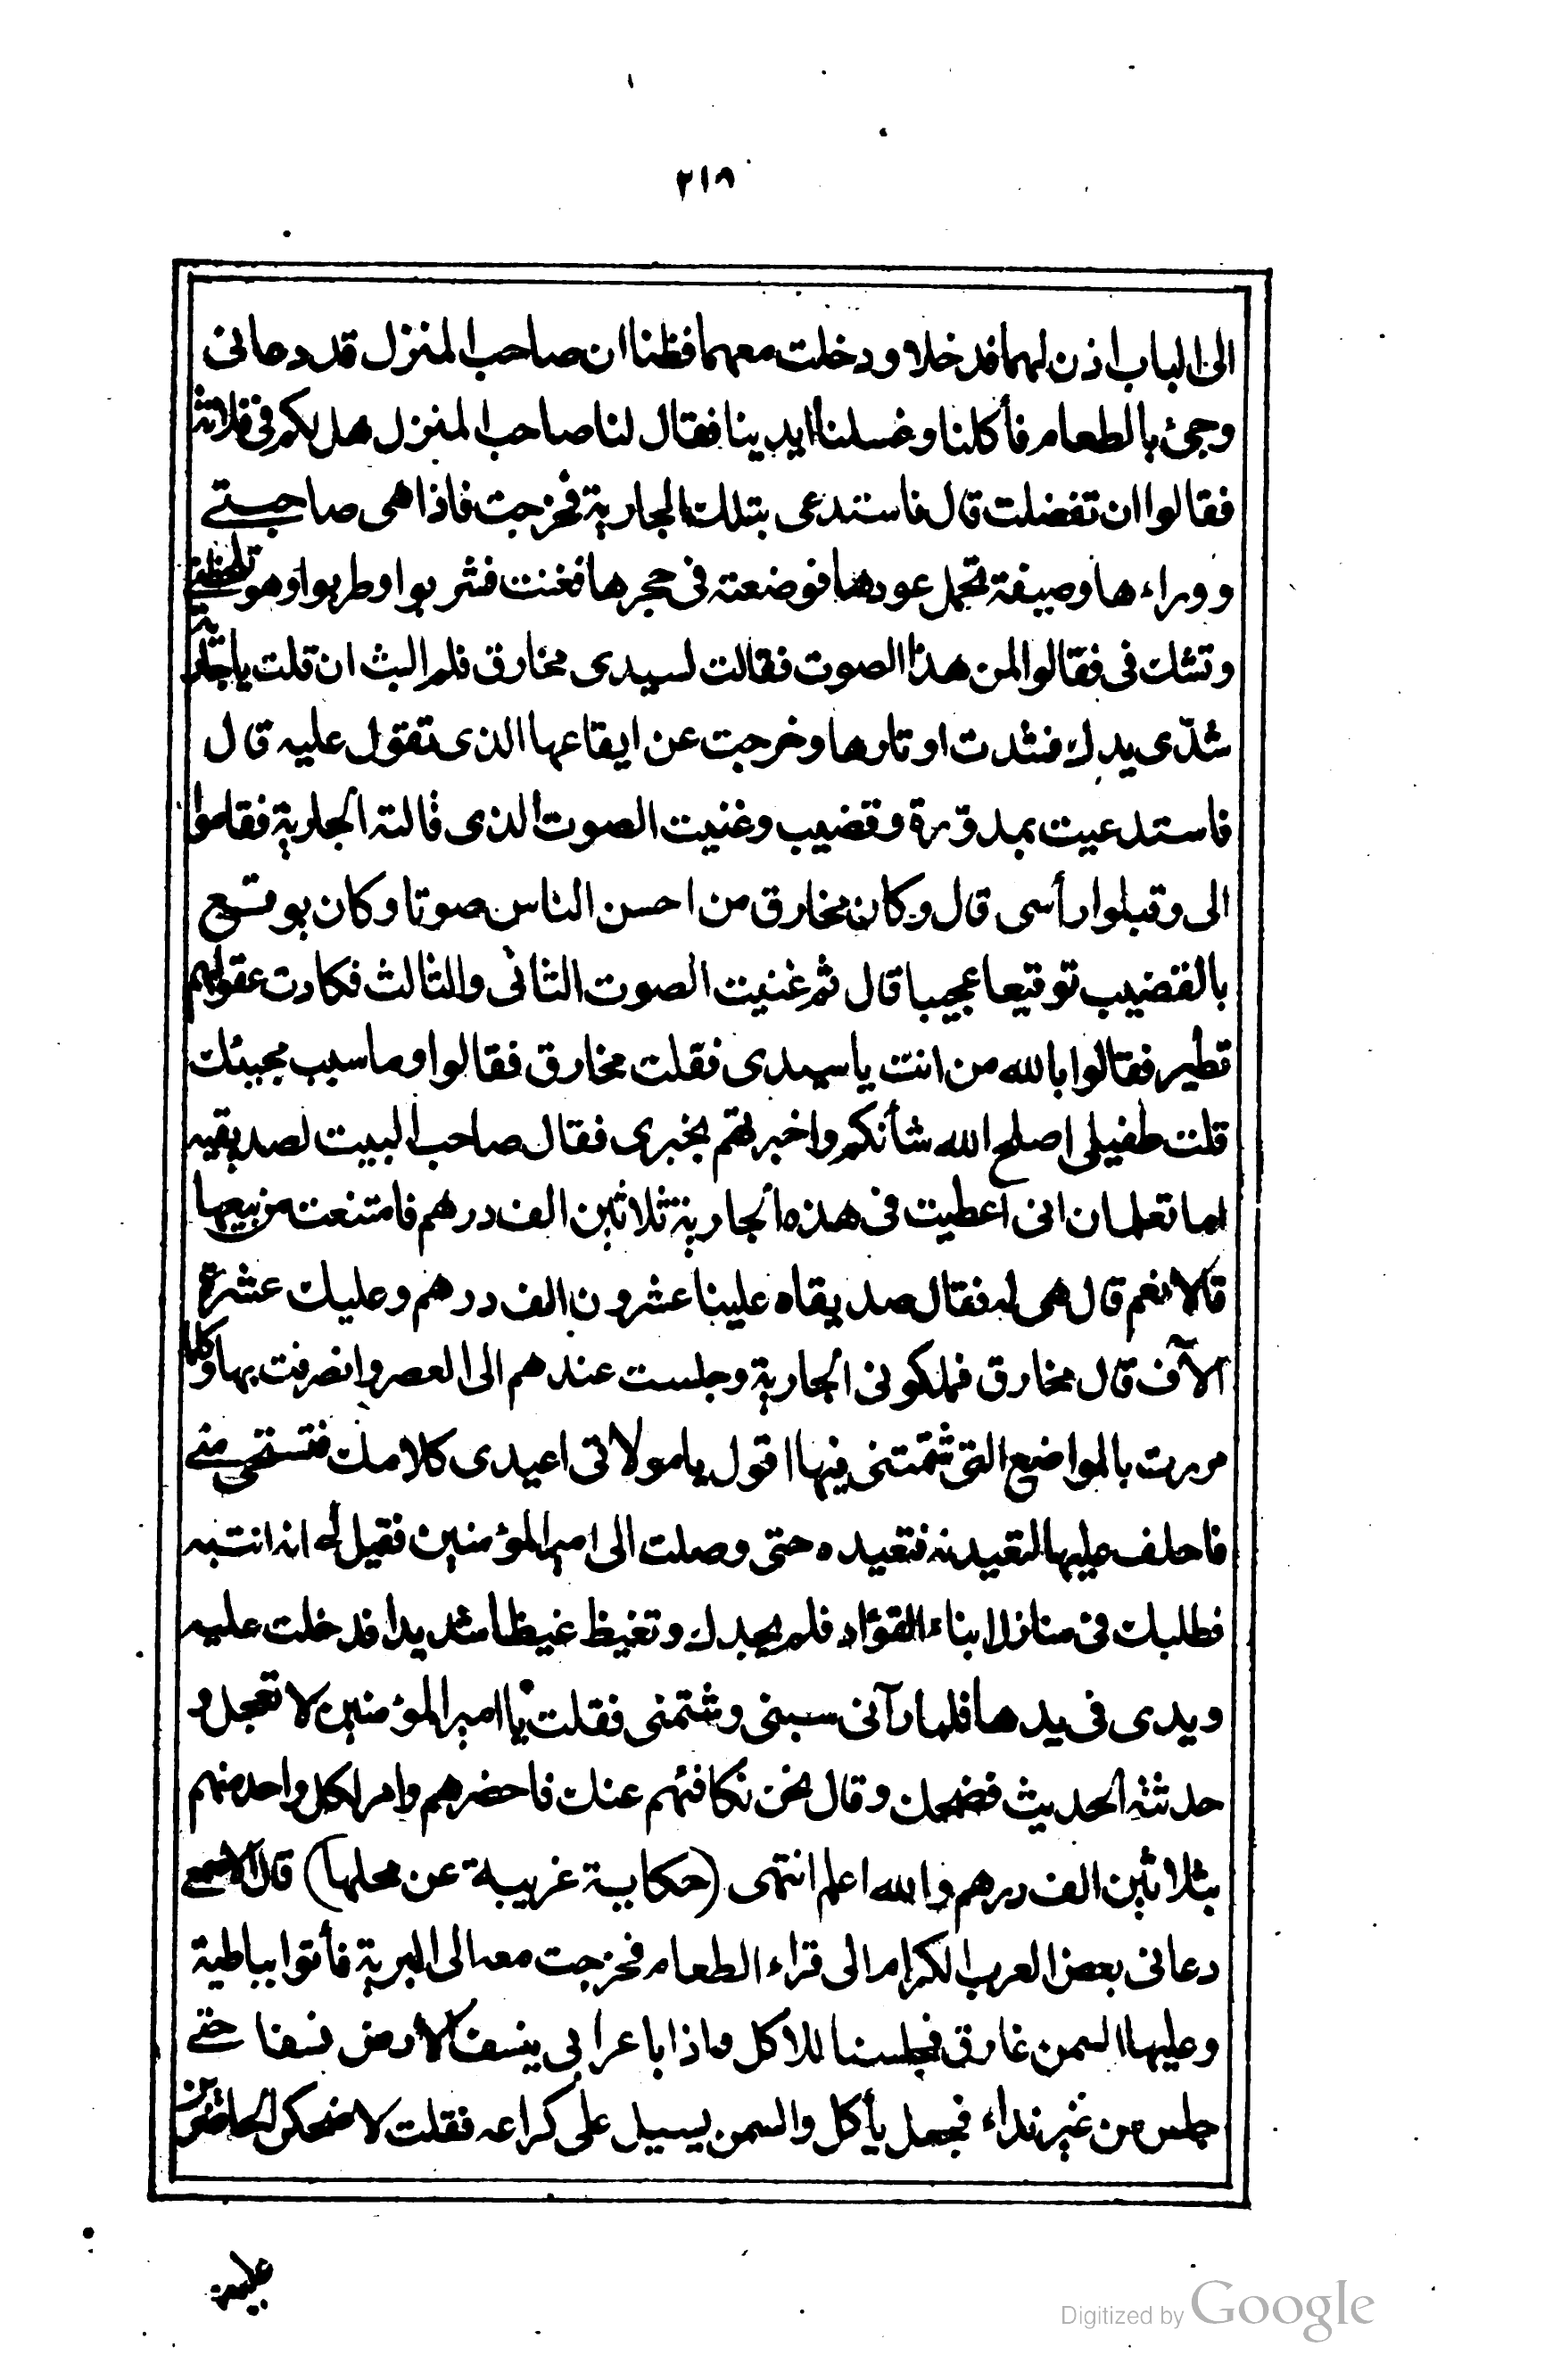 ٢١٨
الى الباب اذن لهما فدخلا ودخلت معهما فظنا ان صاحب المنزل قد دعانى
وجئ بالطعام فأكلنا وغسلنا ايدينا فقال لنا صاحب المنزل هل لكم فى فلانة
فقالوا ان تفضلت قال فاستدعى بتلك الجارية فخرجت فاذا هى صاحبتى
ووراءها وصيفة تحمل عودها فوضعته فى حجرها فغنت فشربوا وطربوا وهو تلحظنى
وتشك فى فقالوا لمن هذا الصوت فقالت لسيدى مخارق فلم البث ان قلت يا جارية
شدّى يدك فشدت اوتارها وخرجت عن ايقاعها الذى تقول عليه قال
فاستدعيت بمدوّرة وقضيب وغنيت الصوت الذى قالته الجارية فقاموا
الى وقبلوا رأسى قال وكان مخارق من احسن الناس صوتا وكان يوقع
بالقضيب توقيعا عجيبا قال ثم غنيت الصوت الثانى والثالث فكادت عقولهم
تطير فقالوا بالله من انت يا سيدى فقلت مخارق فقالوا وما سبب مجيئك
قلت طفيلى اصلح الله شأنكم واخبرتهم بخبرى فقال صاحب البيت لصديقيه
اما تعلمان انى اعطيت فى هذه الجارية ثلاثين الف درهم فامتنعت من بيعها
قالا نعم قال هى له فقال صديقاه علينا عشرون الف درهم وعليك عشرة
آلآف قال مخارق فملكونى الجارية وجلست عندهم الى العصر وانصرفت بها وكلما
مررت بالمواضع التى شتمتنى فيها اقول يا مولاتى اعيدى كلامك فتستحى منى
فاحلف عليها لتعيدنه فتعيده حتى وصلت الى امير المؤمنين فقيل له انه انتبه
فطلبك فى منازل ابناء القوّاد فلم يجدك وتغيظ غيظا شديدا فدخلت عليه
ويدى فى يدها فلما رآنى سبنى وشتمنى فقلت يا امير المؤمنين لا تعجل و
حدثته الحديث فضحك وقال نحن نكافئهم عنك فاحضرهم وامر لكل واحد منهم
بثلاثين الف درهم والله اعلم انتهى (حكاية غريبة عن محلها) قال الاصمعى
دعانى بعض العرب الكرام الى قراء الطعام فخرجت معه الى البرية فأتوا بباطية
وعليها السمن غارق فجلسنا للاكل واذا باعرابى ينسف الارض نسفا حتى
جلس من غير نداء فجعل يأكل والسمن يسيل على كراعه فقلت لاضحكن الحاضرين
عليه
Digitized by Google